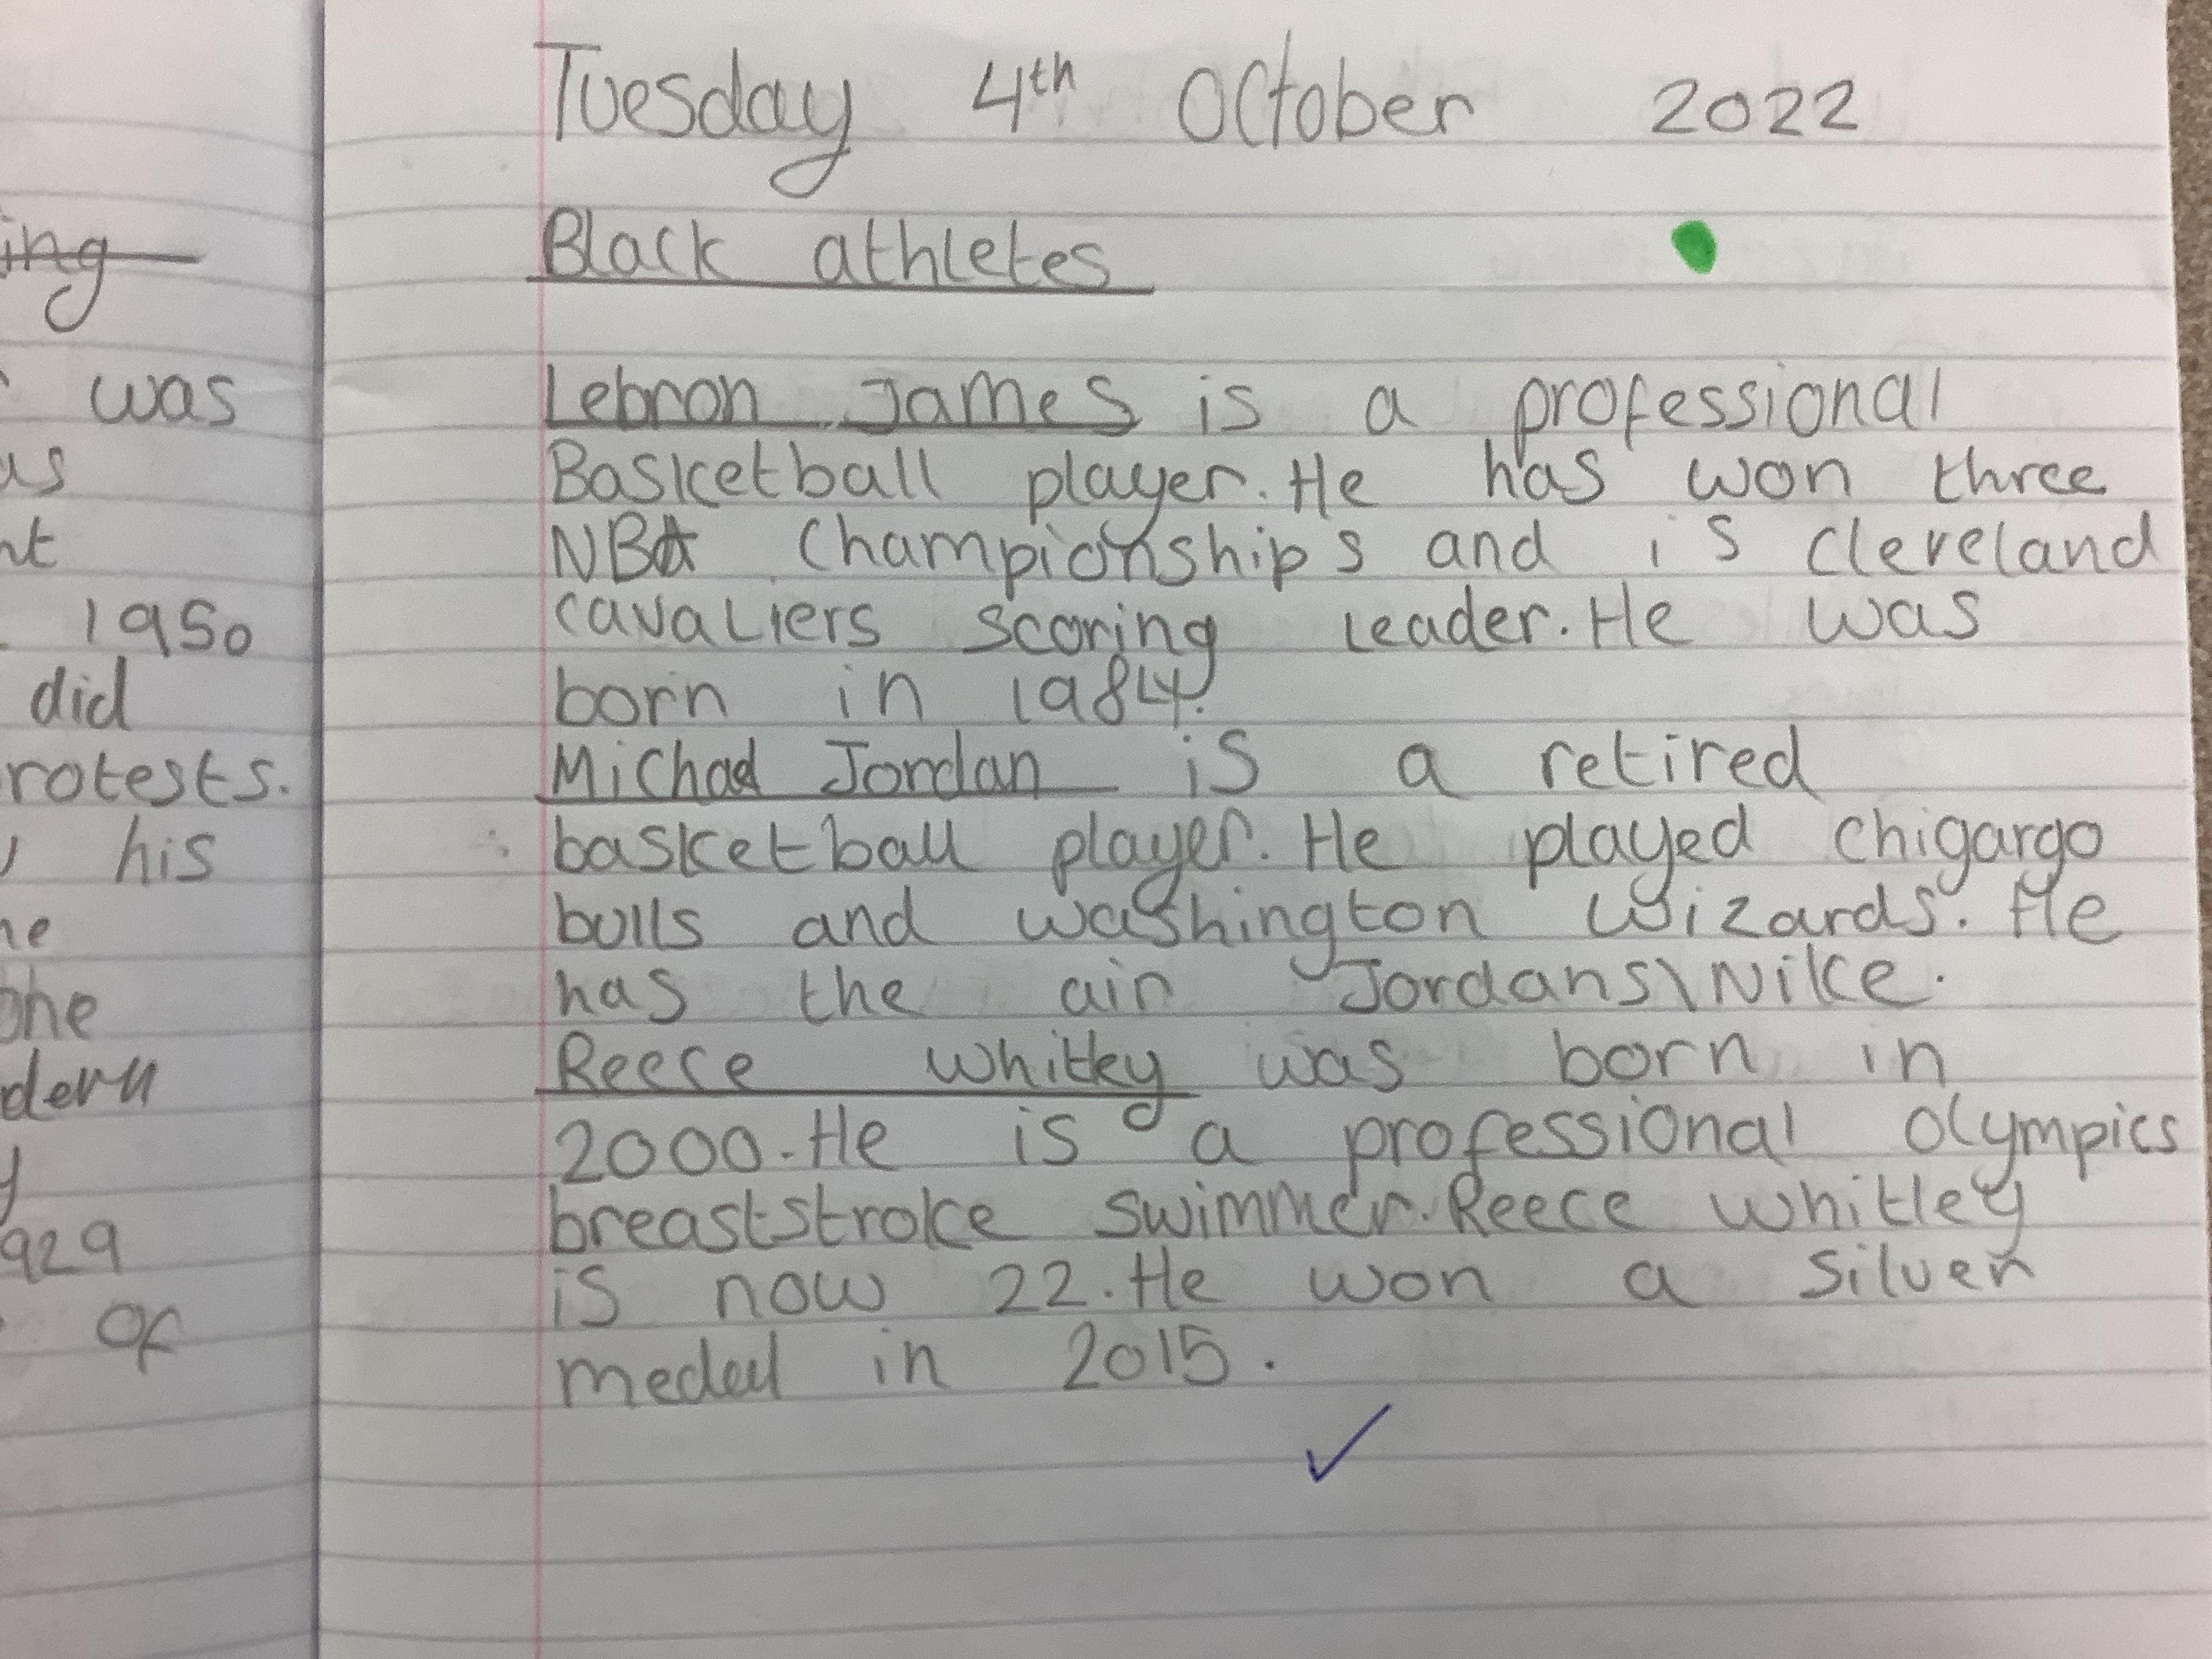 Tuesday 4th October 2022
Black athletes
Lebron James is a professional
Basketball player. He has won three
NBA Championships and is Cleveland
cavaliers scoring leader. He was
born in 1984.
Michael Jordan is a retired
basketball player. He played chigargo
bulls and washington wizards. He
has the air Jordans\Nike.
Reece whitley was born in
2000. He is a professional olympics
breaststroke swimmer. Reece whitley
is now 22. He won a silver
medal in 2015.
ing
was
as
nt
1950
did
rotests.
his
he
one
dern
y
929
of